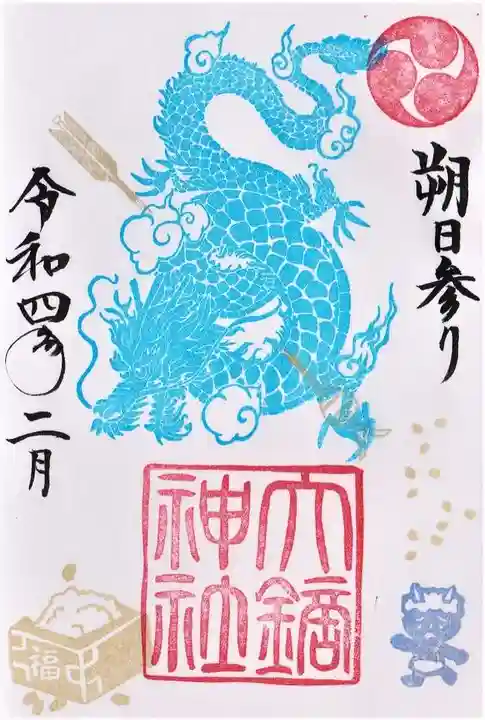 朔日参り
六鏑
神社
令和四年二月
福